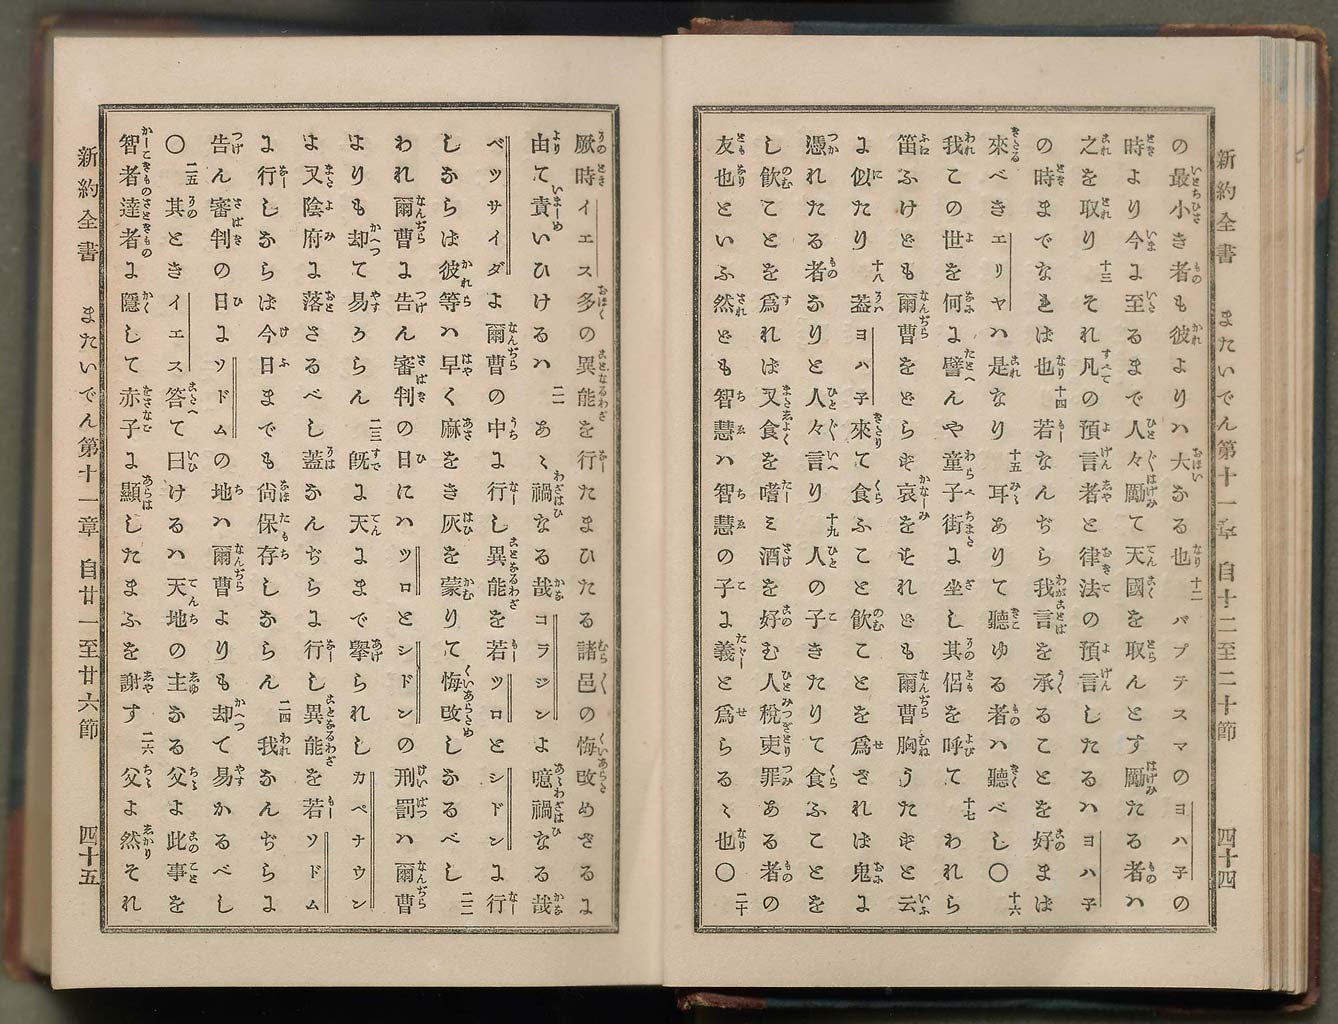 新約全書　またいでん第十一章　自十二至二十節　四十四
の最小き者も彼よりハ大なる也十二バプテスマのヨハ子の
時より今に至るまで人々勵て天國を取んとす勵たる者ハ
之を取り十三それ凡の預言者と律法の預言したるハヨハ子
の時までなれば也十四若なんぢら我言を承ることを好まば
來べきエリヤハ是なり十五耳ありて聽ゆる者ハ聽べし〇十六
我この世を何に譬んや童子街に坐し其侶を呼て十七われら
笛ふけども爾曹をどらず哀をすれども爾曹胸うたずと云
に似たり十八蓋ヨハ子來て食ふこと飮ことを爲ざれば鬼に
憑れたる者なりと人々言り十九人の子きたりて食ふことを
し飮ことを爲れば又食を嗜ミ酒を好む人稅吏罪ある者の
友也といふ然ども智慧ハ智慧の子に義と爲らるゝ也〇二十
厥時イエス多の異能を行たまひたる諸邑の悔改めざるに
由て責いひけるハ二一あゝ禍なる哉コラジンよ噫禍なる哉
ベツサイダよ爾曹の中に行し異能を若ツロとシドンに行
しならば彼等ハ早く麻をき灰を蒙りて悔改しなるべし二二
われ爾曹に告ん審判の日にハツロとシドンの刑罰ハ爾曹
よりも却て易からん二三旣に天にまで擧られしカペナウン
よ又陰府に落さるべし蓋なんぢらに行し異能を若ソドム
に行しならば今日までも尙保存しならん二四我なんぢらに
告ん審判の日にソドムの地ハ爾曹よりも却て易かるべし
〇二五其ときイエス答て曰けるハ天地の主なる父よ此事を
智者達者に隱して赤子に顯したまふを謝す二六父よ然それ
新約全書　またいでん第十一章　自廿一至廿六節　四十五